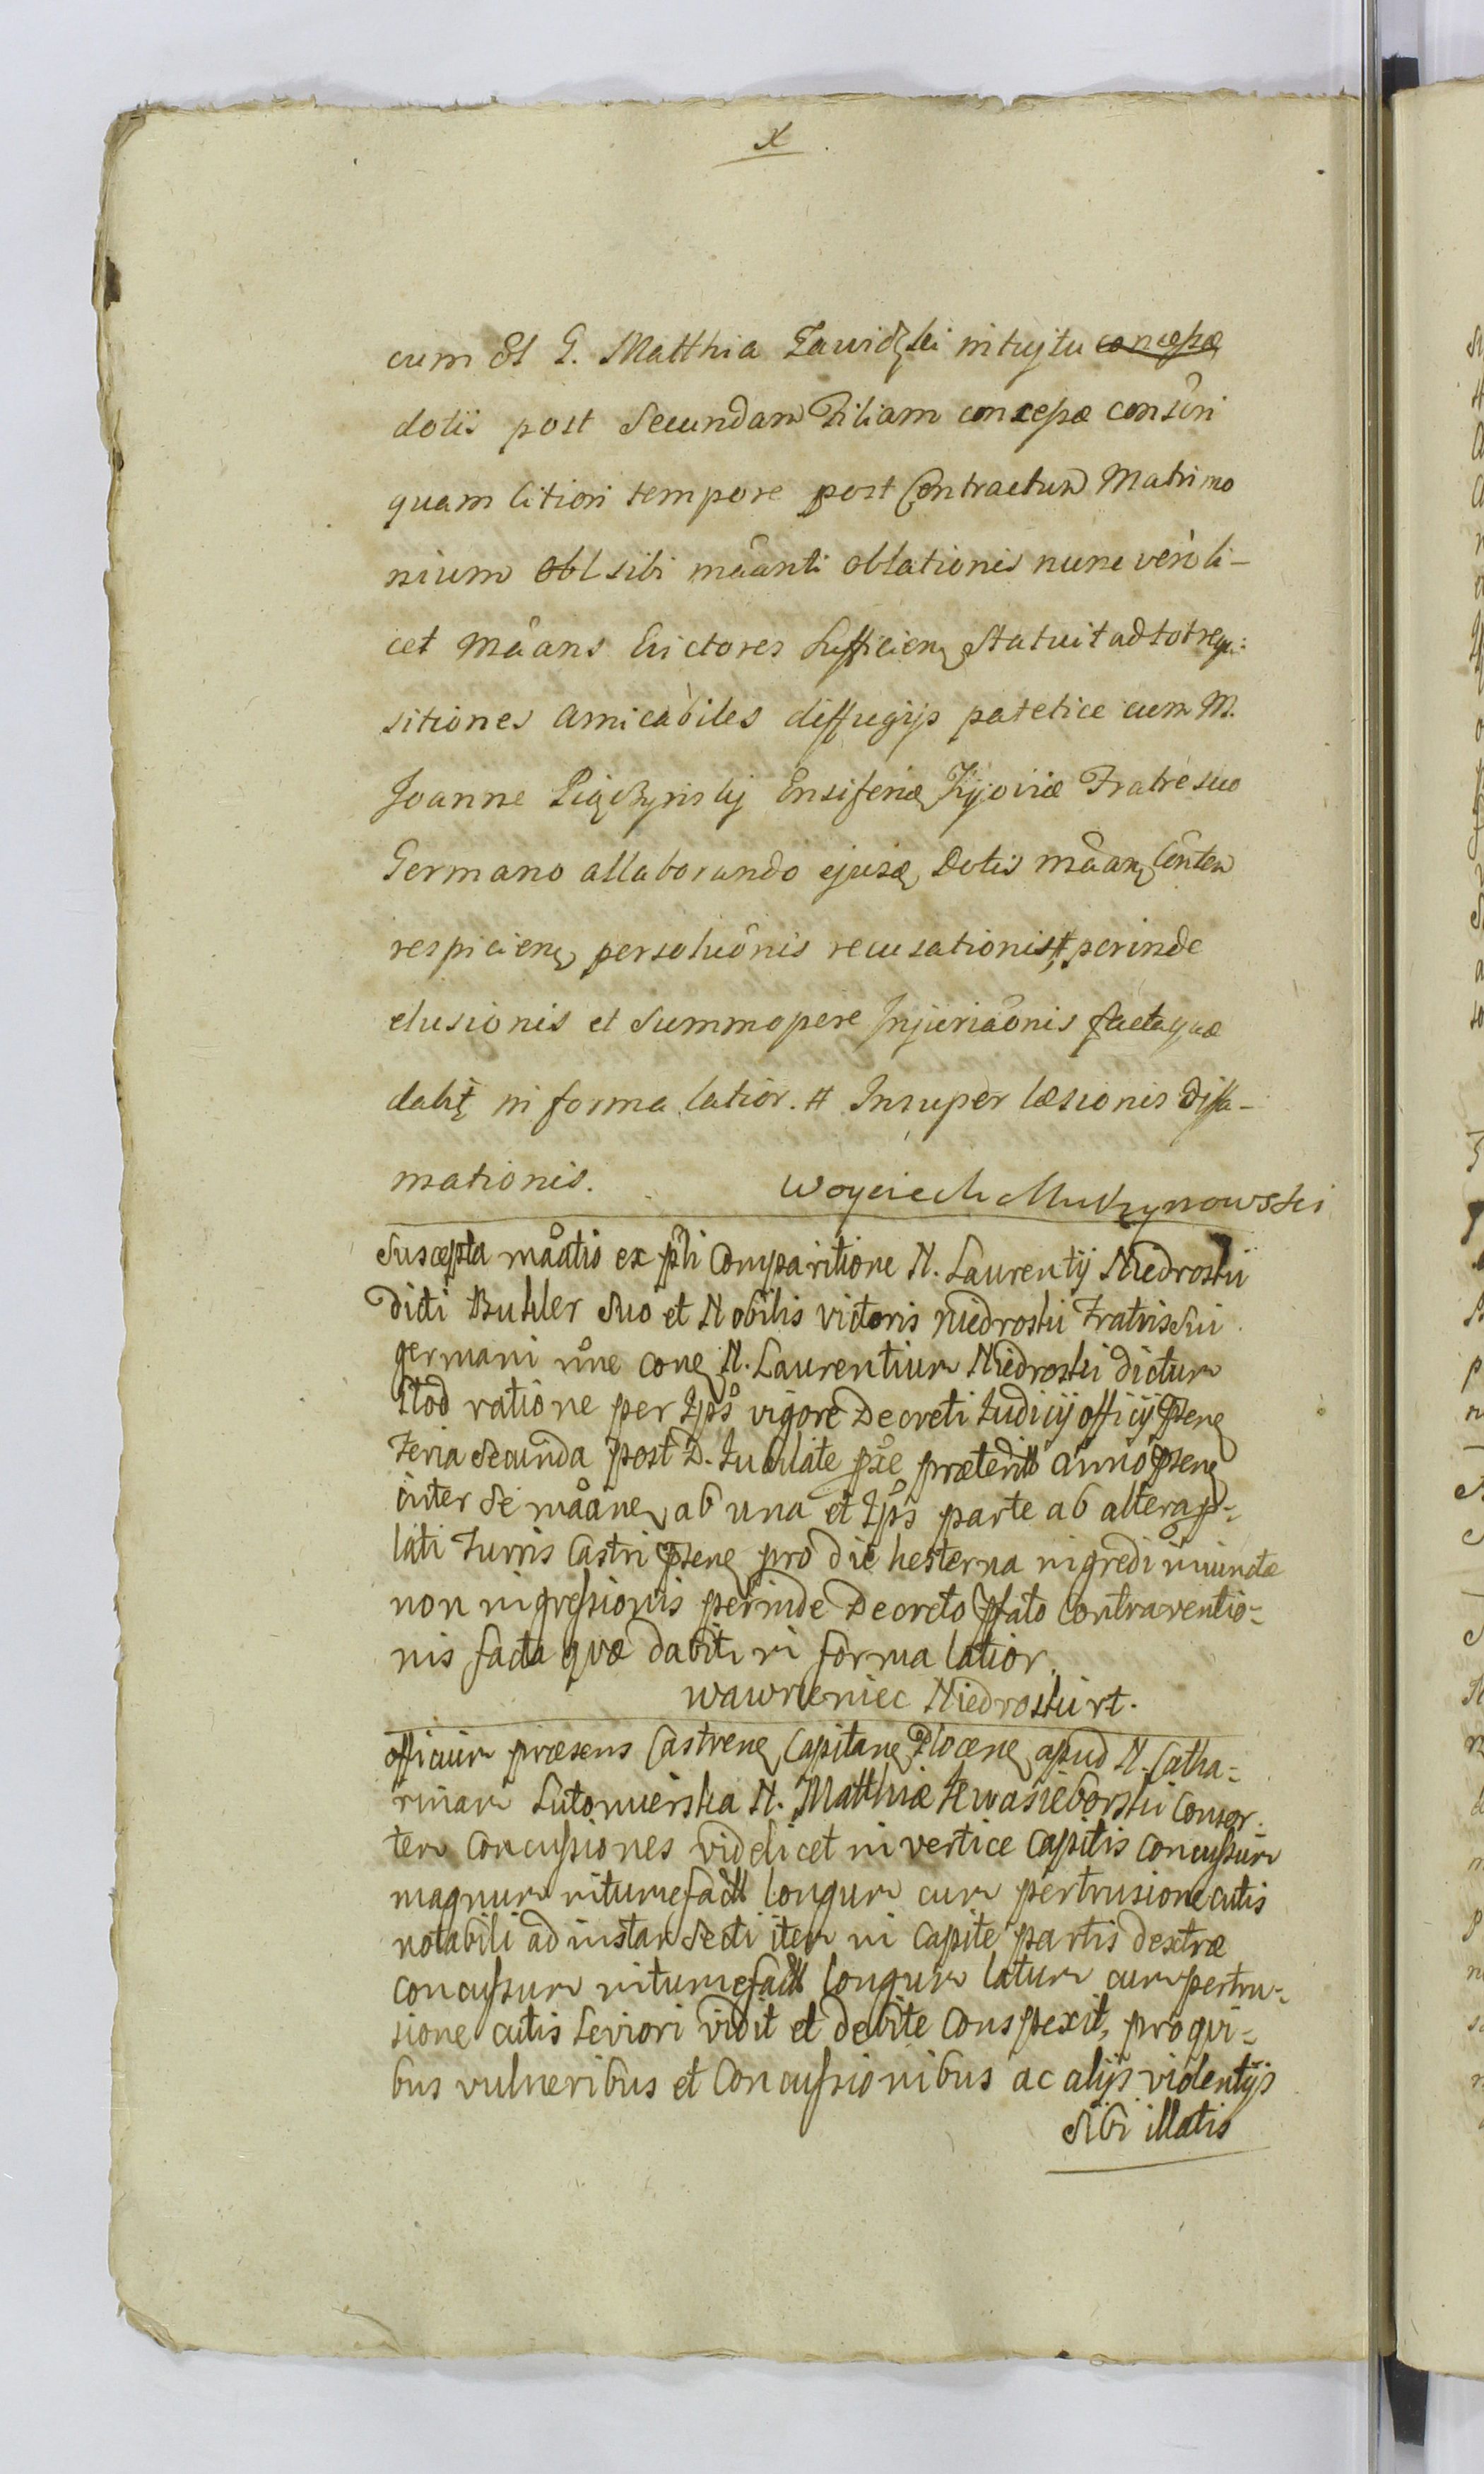 X
cum Ol G. Matthia Zawidzki intuitu concepæ
dotis post Secundam Filiam concepæ consôri
quam citiori tempore post Contractum Matrimo
nium Obl sibi mâanti oblationis nunc verò li-
cet Mâans Evictores Sufficien Statuit ad tot requi:
sitiones amicabiles diffugijs patetice cum M.
Joanne Pigczynskij Ensifero Kijoviæ Fratre suo
Germano allaborando ejusd Dotis mâan Conten
respicien persoluônis recusationis # perinde
elusionis et Summopere Injuriaônis facta quæ
dabit in forma latior. # Insuper læsionis diffa-
mationis.
Woyciech Muchynowski
Suscepta mâatio ex pñti Comparitione N. Laurentij Niedroskii
dicti Buhler Suo et Nobilis victoris Niedroskii Fratris Sui
germani nône cone N. Laurentium Niedroski dictum
Kłod ratione per Ips vigore Decreti Iudicij officij psene
Feria Secunda post D. Jubilate pxe præterito anno psene
inter Se mâane ab una et Ips parte ab altera p-
lati Turris Castri psene pro die hesterna ingredi iniunctæ
non ingressionis perinde Decreto pfato Contraventio-
nis facta quæ dabit in forma latior.
Wawrzeniec Niedroski rt.
Officium præsens Castrene Capitane Plocene apud N. Catha-
rinam Lutomierska N. Matthiæ Kwasieborski Consor-
tem Concussiones videlicet in vertice Capitis Concussum
magnum intumefact longum cum pertrusione cutis
notabili ad instar Secti item in Capite partis dextræ
concussum intumefact longum latum cum pertru-
sione cutis Leviori vidit et debite Conspexit, pro qui-
bus vulneribus et Concussionibus ac alijs violentijs
Sibi illatis